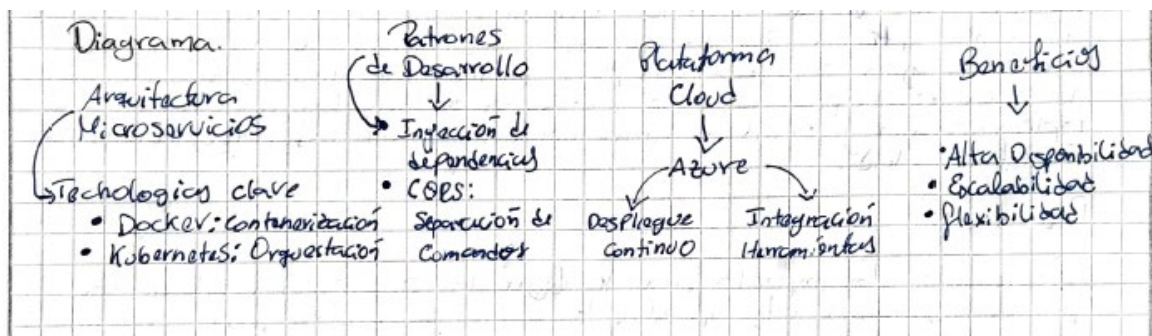 Diagrama.
Arquitectura
Microservicios
Technologias clave
• Docker: Contenerización
• Kubernetes: Orquestación
Patrones
de Desarrollo
• Inyección de
dependencias
• CQRS:
Separación de
Comandos
Plataforma
Cloud
Azure
Despliegue
Continuo
Integración
Herramientas
Beneficios
• Alta Disponibilidad
• Escalabilidad
• Flexibilidad